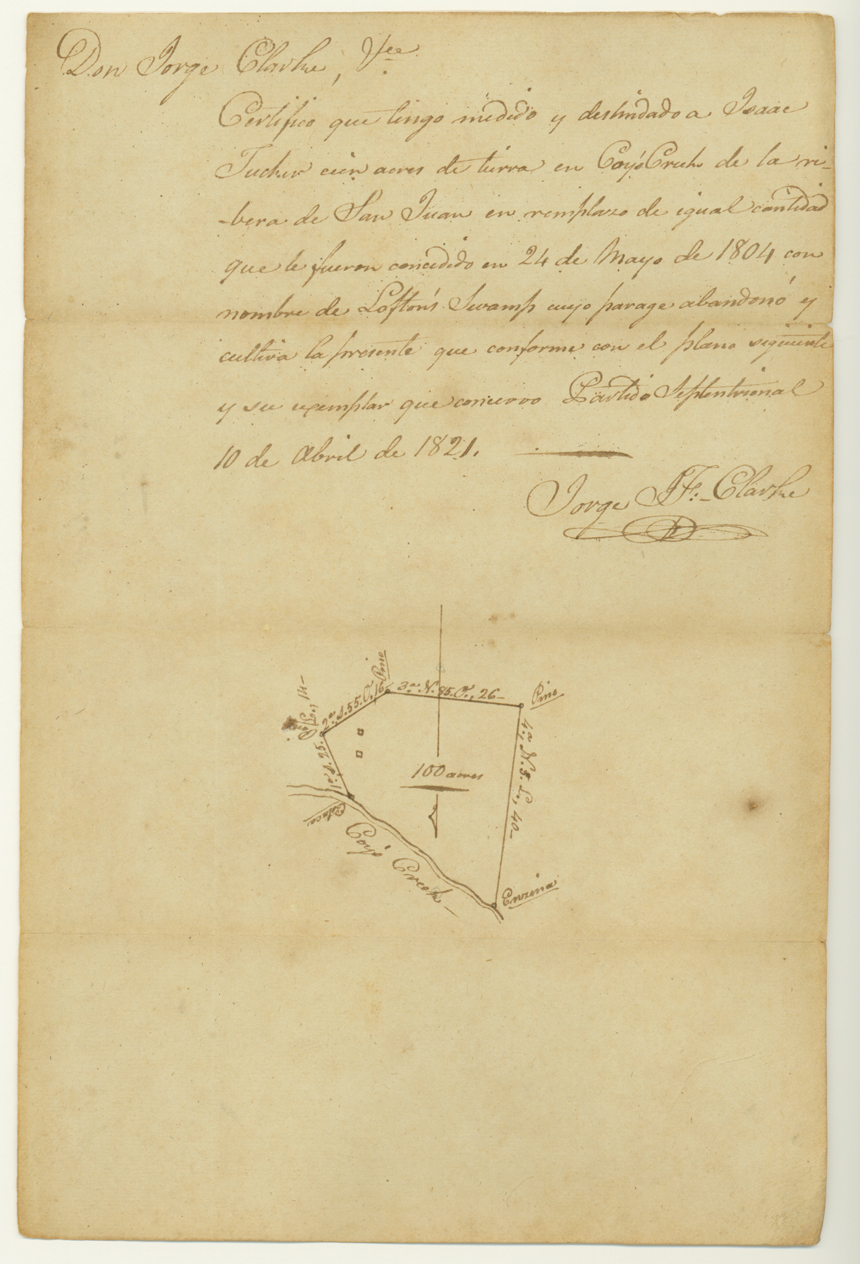 Don Jorge Clarke, &ce.
Certifico que tengo medido y deslindado a Isaac
Tucker cien acres de tierra en Coyó Creek de la ri-
-bera de San Juan en remplazo de igual cantidad
que le fueron concedido en 24 de Mayo de 1804 con
nombre de Lofton's Swamp cuyo parage abandonó y
cultiva la presente que conforme con el plano siguiente
y su exemplar que conservo Partido Septentrional
10 de Abril de 1821.
Jorge J. F. Clarke
Pino
2a. S. 55. O., 16
3a. N. 85. O., 26-
Pino
1a. S. 25.
14-
4a. N. 5. E., 40-
100 acres
Coyó Creek-
Enzina